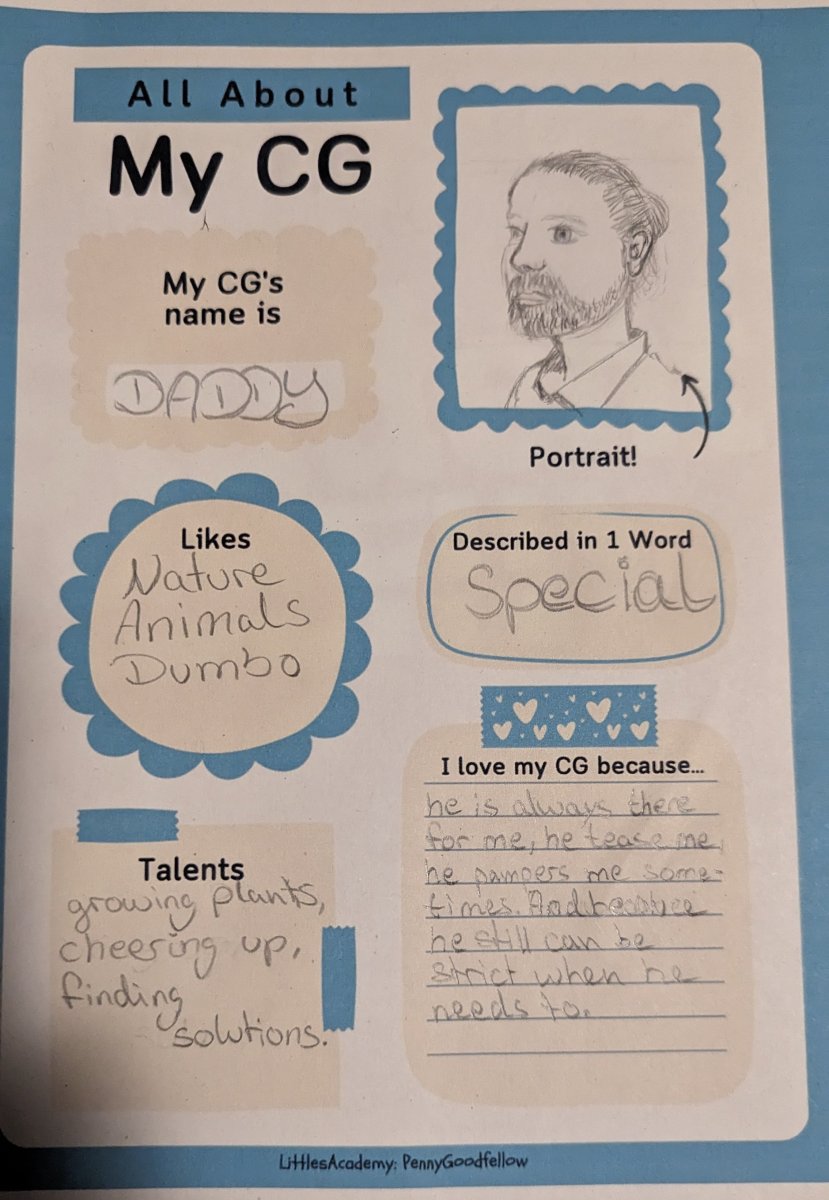 All About
My CG
My CG's
name is
DADDY
Portrait!
Likes
Nature
Animals
Dumbo
Described in 1 Word
Special
Talents
growing plants,
cheering up,
finding
solutions.
I love my CG because...
he is always there
for me, he tease me,
he pampers me some-
times. And because
he still can be
strict when he
needs to.
LittlesAcademy: PennyGoodfellow